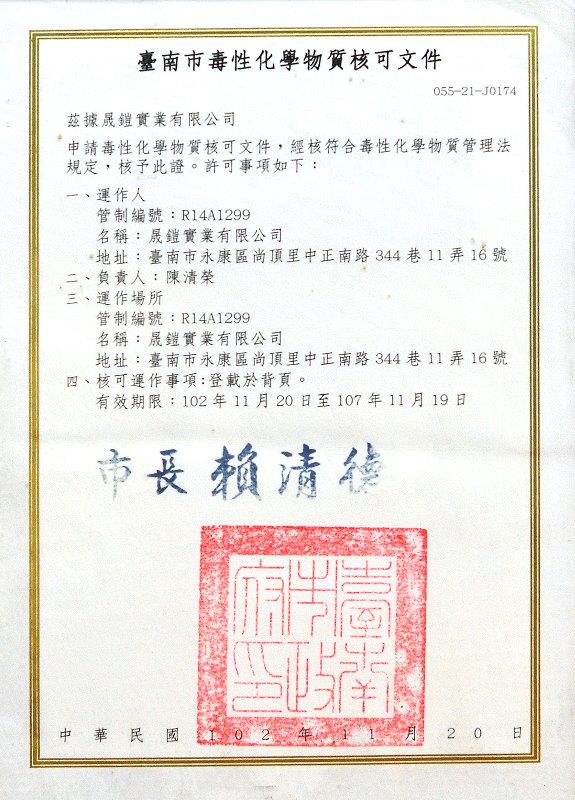 臺南市毒性化學物質核可文件
055-21-J0174
茲據晟鎧實業有限公司
申請毒性化學物質核可文件，經核符合毒性化學物質管理法
規定，核予此證。許可事項如下：
一、運作人
管制編號：R14A1299
名稱：晟鎧實業有限公司
地址：臺南市永康區尚頂里中正南路 344 巷 11 弄 16 號
二、負責人：陳清榮
三、運作場所
管制編號：R14A1299
名稱：晟鎧實業有限公司
地址：臺南市永康區尚頂里中正南路 344 巷 11 弄 16 號
四、核可運作事項:登載於背頁。
有效期限：102 年 11 月 20 日至 107 年 11 月 19 日
市長賴清德
臺南市政府印
中華民國 102 年 11 月 20 日